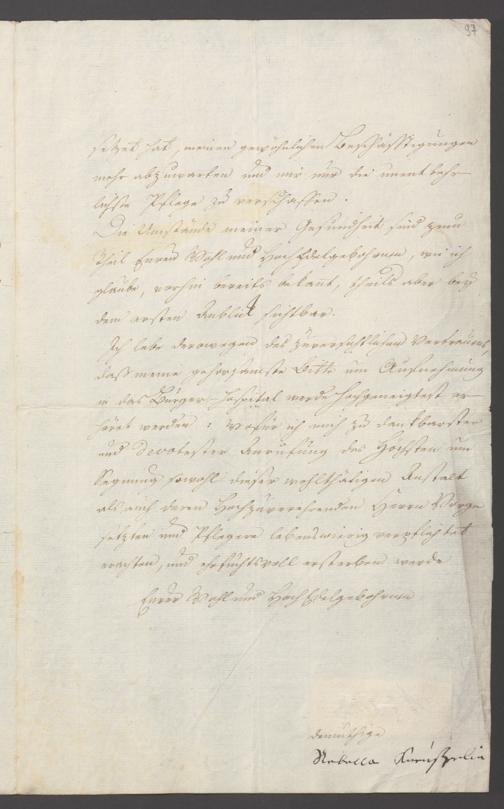 97
setzet hat, meinen gewöhnlichen Beschäfftigungen
mehr abzuwarten und mir nur die unentbehr-
lichste Pflege zu verschaffen.
Die Umstände meiner Gesundheit sind zum
Theil Euren Wohl und HochEdelgebohrnen, wie ich
glaube, vorhin bereits bekant, theils aber bey
dem ersten Anblick sichtbar.
Ich lebe derowegen des zuversichtlichen Vertrauens,
daß meine gehorsamste Bitte um Aufnehmung
in das Bürger-Hospital werde hochgeneigtest er-
höret werden: wofür ich mich zu dankbarster
und devotester Anrufung des Höchsten um
Segnung sowohl dieser wohlthätigen Anstalt
als auch deren Hochzuverehrenden Herrn Vorge-
setzten und Pflegere lebenswierig verpflichtet
erachten, und ehrfuchtsvoll ersterben werde
Eurer Wohl und HochEdelgebohrnen
demüthige
Rebecca